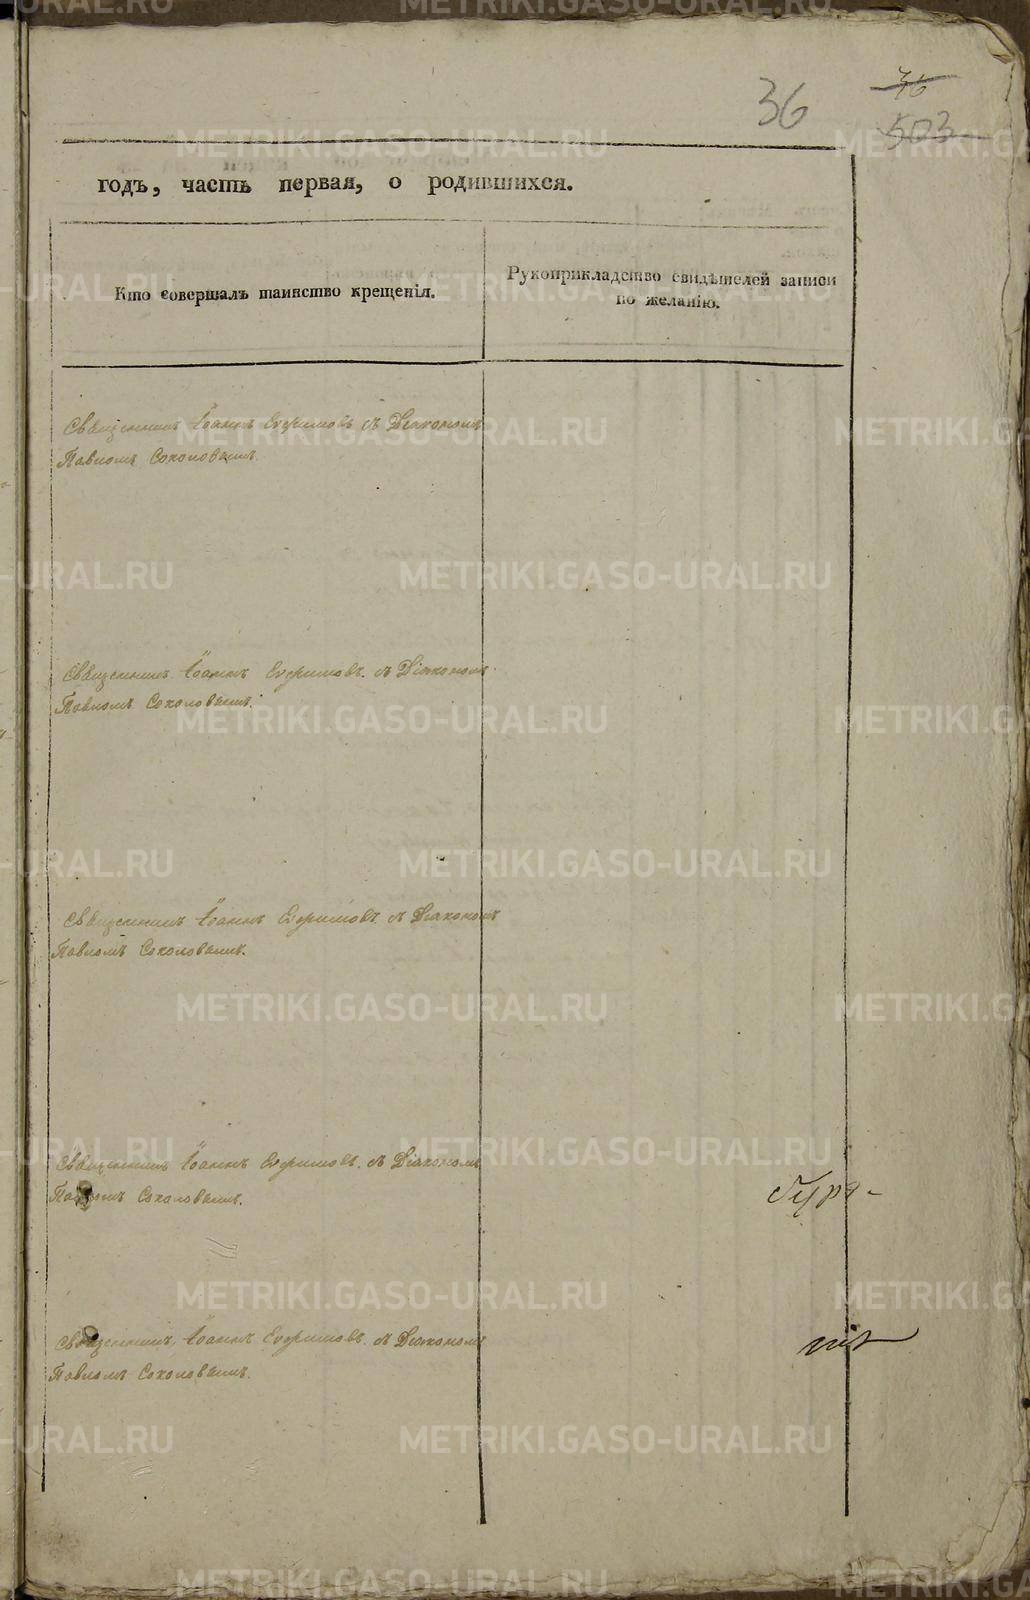 36
36
503
годъ, часть первая, о родившихся.
Кто совершалъ таинство крещенія.
Рукоприкладство свидѣтелей записи
по желанію.
Священникъ Іоаннъ Ефимовъ съ Діакономъ
Павломъ Соколовымъ.
Священникъ Іоаннъ Ефимовъ. съ Діакономъ
Павломъ Соколовымъ.
Священникъ Іоаннъ Ефимовъ съ Діакономъ
Павломъ Соколовымъ.
Священникъ Іоаннъ Ефимовъ. съ Діакономъ
Павломъ Соколовымъ.
Священникъ Іоаннъ Ефимовъ. съ Діакономъ
Павломъ Соколовымъ.
METRIKI.GASO-URAL.RU